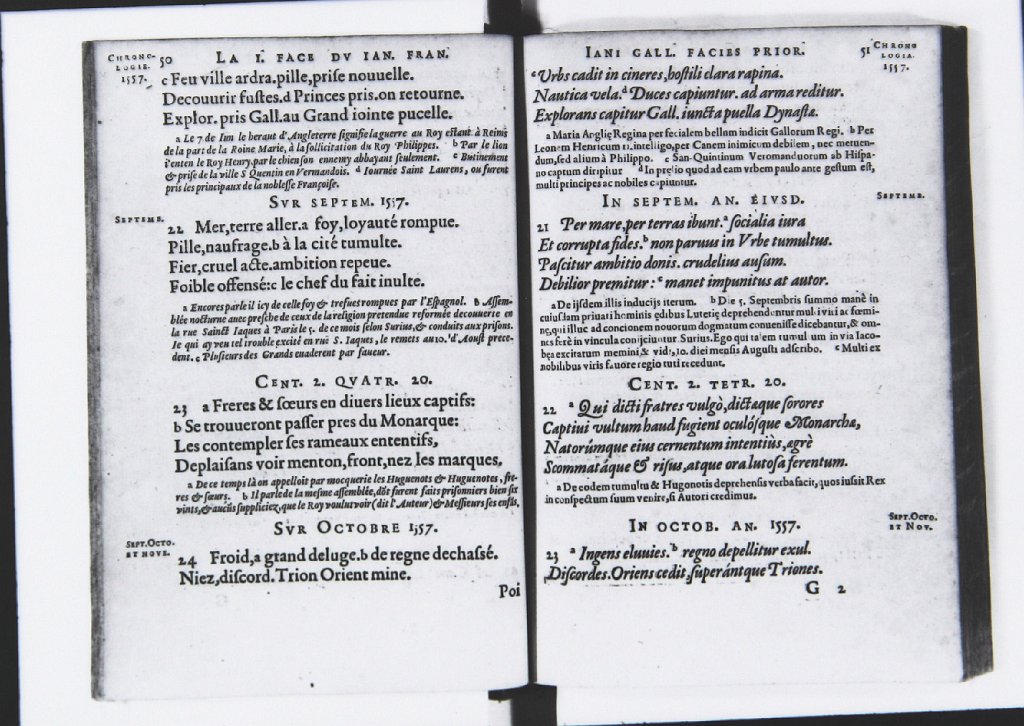 CHRONO-
LOGIE.
1557.
50
LA I. FACE DV IAN. FRAN.
c Feu ville ardra.pille,prise nouuelle.
Decouurir fustes.d Princes pris.on retourne.
Explor. pris Gall.au Grand iointe pucelle.
a Le 7 de Iuin le heraut d'Angleterre signifie la guerre au Roy estant à Reims
de la part de la Roine Marie, à la sollicitation du Roy Philippes. b Par le lion
i'enten le Roy Henry.par le chien son ennemy abbayant seulement. c Butinement
& prise de la ville S Quentin en Vermandois. d Iournée Saint Laurens, ou furent
pris les principaux de la noblesse Françoise.
SVR SEPTEM. 1557.
SEPTEMB.
22 Mer,terre aller.a foy,loyauté rompue.
Pille,naufrage.b à la cité tumulte.
Fier,cruel acte.ambition repeue.
Foible offensé:c le chef du fait inulte.
a Encores parle il icy de celle foy & trefues rompues par l'Espagnol. b Assem-
blée nocturne auec presche de ceux de la religion pretendue reformée decouuerte en
la rue Sainct Iaques à Paris le 5. de ce mois selon Surius,& conduits aux prisons.
Ie qui ay veu tel trouble excité en ruë S. Iaques, le remets au 10. d'Aoust prece-
dent. c Plusieurs des Grands euaderent par faueur.
CENT. 2. QVATR. 20.
23 a Freres & sœurs en diuers lieux captifs:
b Se trouueront passer pres du Monarque:
Les contempler ses rameaux ententifs,
Deplaisans voir menton,front,nez les marques.
a De ce temps là on appelloit par mocquerie les Huguenots & Huguenotes, fre-
res & sœurs. b Il parle de la mesme assemblée,dõt furent faits prisonniers bien six
vints,& aucũs suppliciez,que le Roy voulut voir (dit l'Auteur) & Messieurs ses enfans.
SVR OCTOBRE 1557.
SEPT.OCTO.
ET NOVE.
24 Froid,a grand deluge.b de regne dechassé.
Niez,discord.Trion Orient mine.
Poi
IANI GALL. FACIES PRIOR.
51
CHRONO
LOGIA.
1557.
c Vrbs cadit in cineres,hostili clara rapina.
Nautica vela.d Duces capiuntur. ad arma reditur.
Explorans capitur Gall. iuncta puella Dynastæ.
a Maria Angliæ Regina per fecialem bellum indicit Gallorum Regi. b Per
Leonem Henricum 11.intelligo,per Canem inimicum debilem, nec metuen-
dum,sed alium à Philippo. c San-Quintinum Veromanduorum ab Hispa-
no captum diripitur d In prælio quod ad eam vrbem paulo ante gestum est,
multi principes ac nobiles capiuntur.
IN SEPTEM. AN. EIVSD.
SEPTEMB.
21 Per mare,per terras ibunt.a socialia iura
Et corrupta fides.b non paruus in Vrbe tumultus.
Pascitur ambitio donis. crudelius ausum.
Debilior premitur: c manet impunitus at autor.
a De ijsdem illis inducijs iterum. b Die 5. Septembris summo manè in
cuiusdam priuati hominis ædibus Lutetiæ deprehenduntur multi viri ac fœmi-
næ,qui illuc ad concionem nouorum dogmatum conuenisse dicebantur,& om-
nes ferè in vincula conijciuntur. Surius.Ego qui talem tumultum in via Iaco-
bæa excitatum memini,& vidi,10. diei mensis Augusti adscribo. c Multi ex
nobilibus viris fauore regio tuti recedunt.
CENT. 2. TETR. 20.
22 a Qui dicti fratres vulgò,dictæque sorores
Captiui vultum haud fugient oculósque Monarchæ,
Natorúmque eius cernentum intentiùs,ægrè
Scommatáque & risus,atque ora lutosa ferentum.
a De eodem tumultu & Hugonotis deprehensis verba facit,quos iussit Rex
in conspectum suum venire,si Autori credimus.
IN OCTOB. AN. 1557.
SEPT.OCTO.
ET NOV.
23 a Ingens eluuies. b regno depellitur exul.
Discordes.Oriens cedit,superántque Triones.
G 2